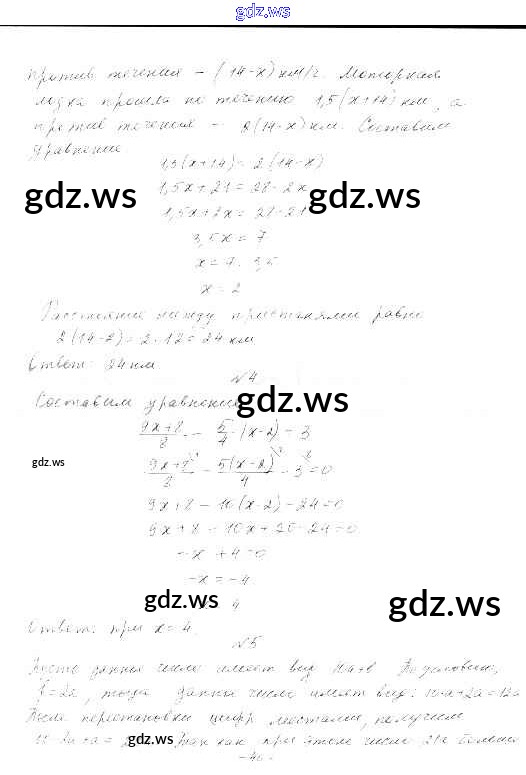 gdz.ws
против течения - (14-x) км/ч. Моторная
лодка прошла по течению 1,5(x+14) км, а
против течения - 2(14-x) км. Составим
уравнение
1,5(x+14) = 2(14-x)
gdz.ws 1,5x+21=28-2x gdz.ws
1,5x+2x=28-21
3,5x = 7
x = 7 : 3,5
x = 2
Расстояние между пристанями равно
2(14-2)=2·12=24 км
Ответ: 24 км.
№4
Составим уравнение gdz.ws
9x+8/8 - 5/4 · (x-2) = 3
gdz.ws 9x+8/8 - 5(x-2)/4 - 3 = 0
9x+8-10(x-2)-24=0
9x+8-10x+20-24=0
-x+4=0
-x=-4
gdz.ws
x = 4 gdz.ws
Ответ: при x=4.
№5
Пусть данное число имеет вид 10a+b По условию,
b=2a, тогда данное число имеет вид: 10a+2a=12a
После перестановки цифр местами, получим
10·2a+a = gdz.ws Так как при этом число